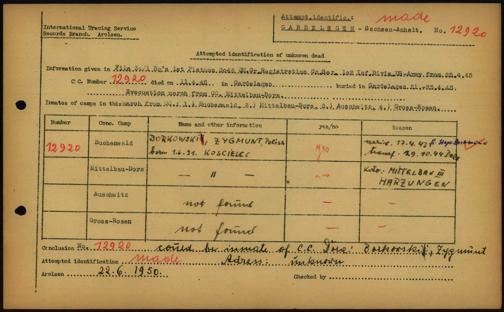 International Tracing Service
Records Branch. Arolsen.
Attempt.identific.: made
GARDELEGEN - Sachsen-Anhalt. No. 12920
Attempted identification of unknown dead
Information given in
C.C. Number 12920 died on 13.4.45 in Gardelegen buried in Gardelegen
Evacuation march from CC. Mittelbau-Dora.
Inmates of camps in this march from CC.: 1.) Buchenwald, 2.) Mittelbau-Dora, 3.) Auschwitz, 4.) Gross-Rosen.
Number Conc. Camp Name and other information yes/no Reason
12920 Buchenwald DORKOWSKI, ZYGMUNT, Polish
born 1.6.21. KOSCIELEC
Mittelbau-Dora — " — Kdo: MITTELBAU III
HARZUNGEN
Auschwitz not found — —
Gross-Rosen not found — —
Conclusion No. 12920 could be inmate of C.C. Dora: Dorkowski, Zygmunt
Attempted identification made Adress: unknown
Arolsen 22.6.1950. Checked by